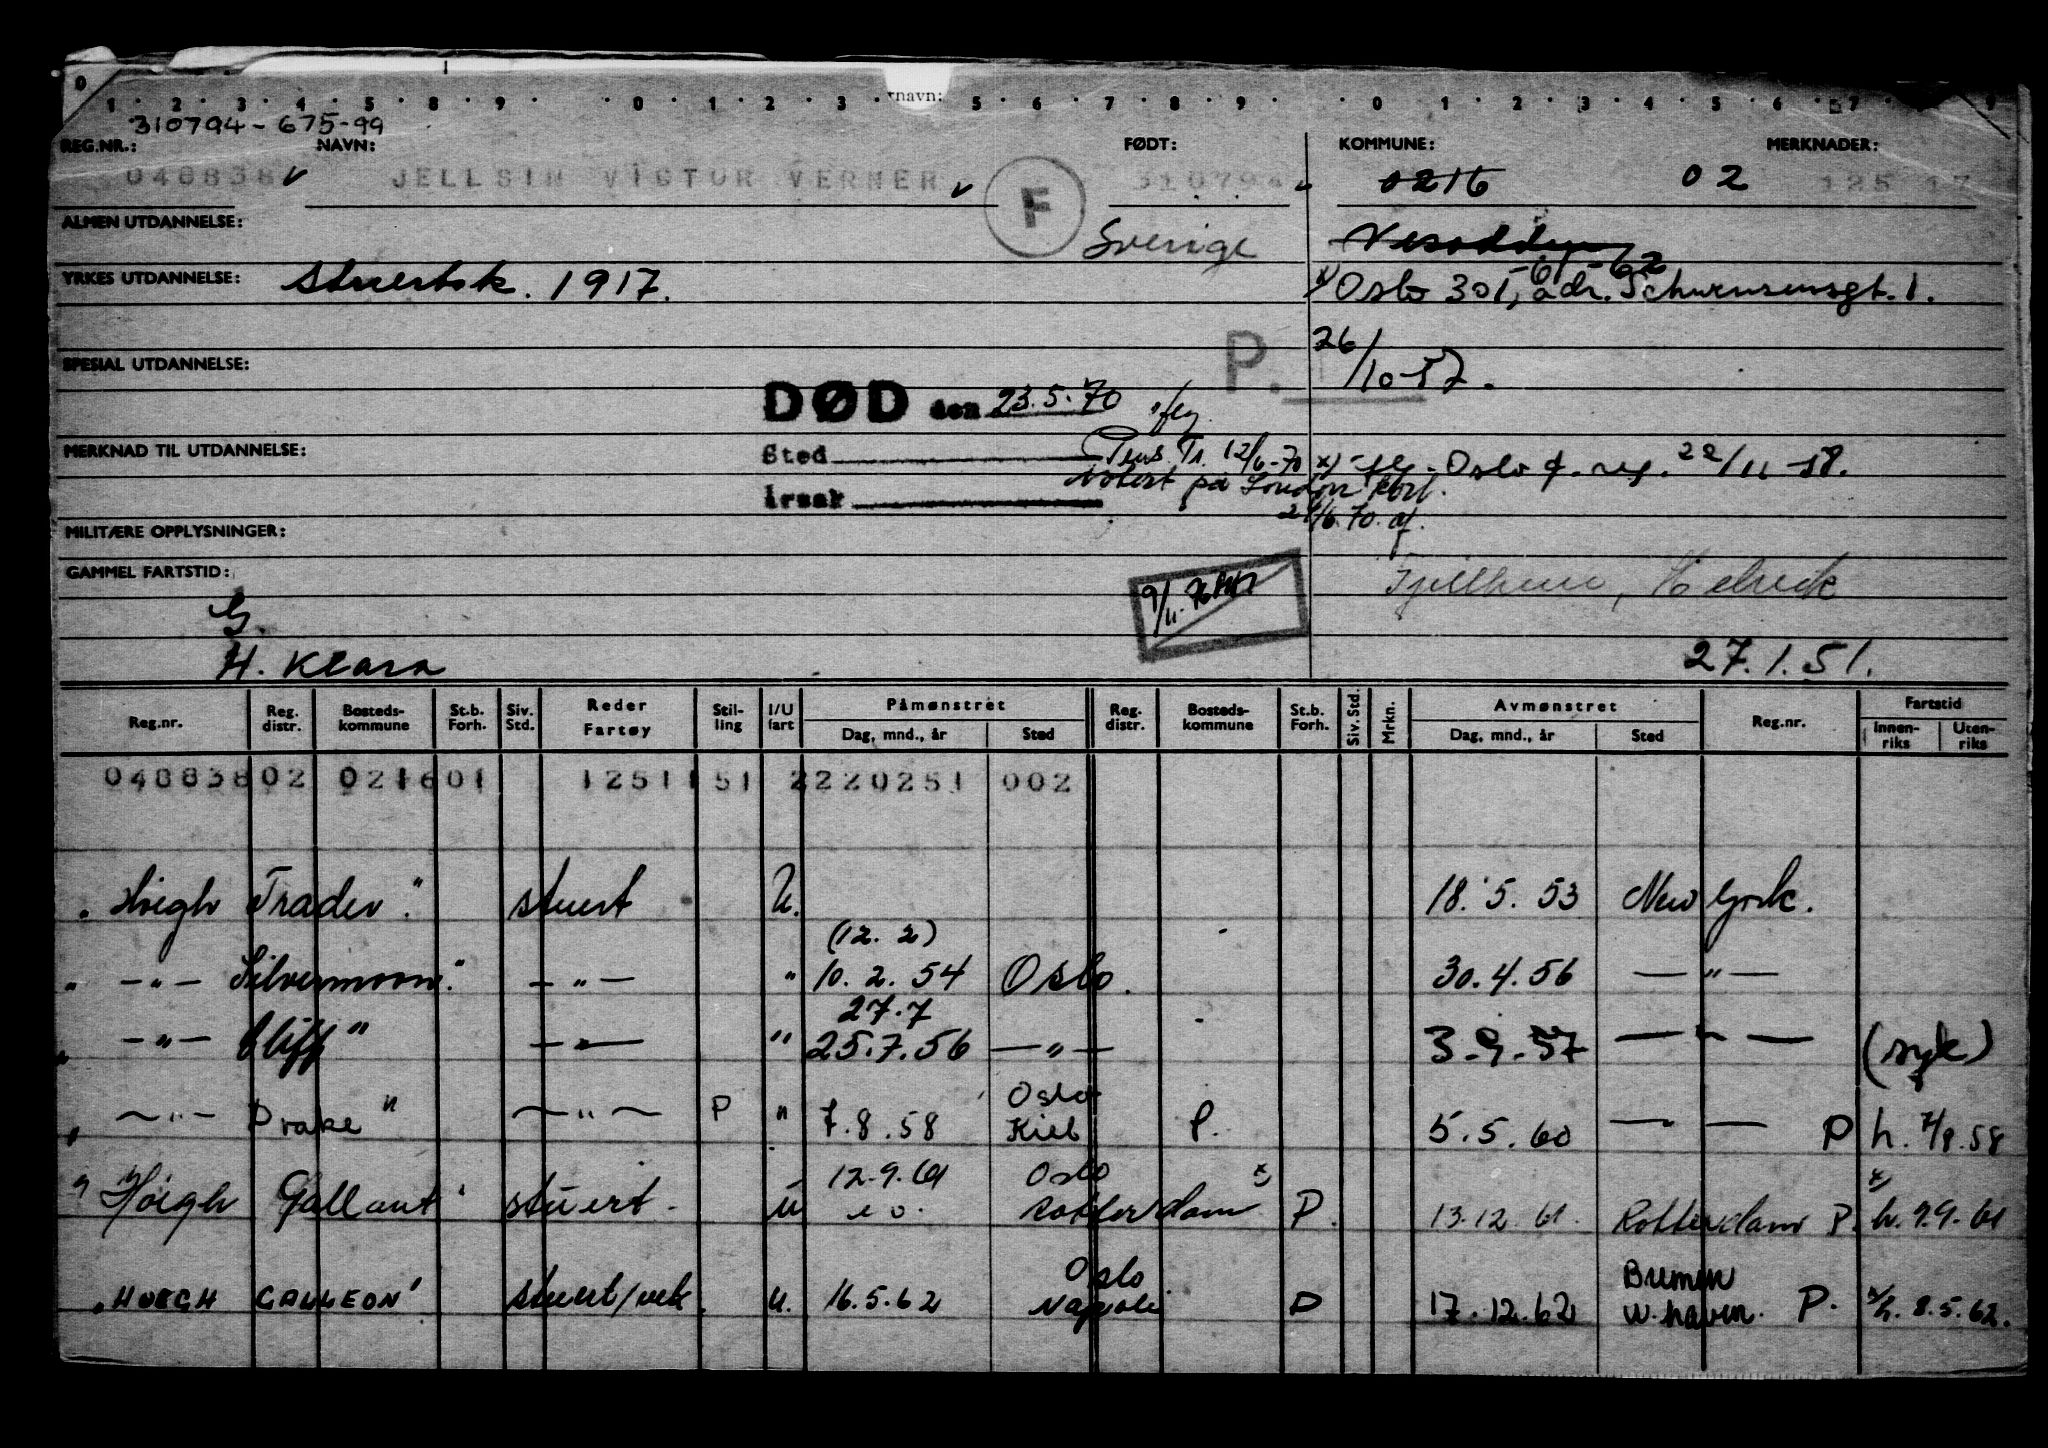 0 1 2 3 4 5 8 9 0 1 2 3 5 6 7 8 9 0 1 2 3 4 5 6 7
rnavn:
310794-675-99
REG.NR.: NAVN: FØDT: KOMMUNE: MERKNADER:
048838 JELLSIN VICTOR VERNER F 310794 0216 02 125 17
ALMEN UTDANNELSE: Sverige Nesodden
YRKES UTDANNELSE: Stuertsk. 1917. x) Oslo 301, adr. Schwensensgt. 1.
-61-62
P. 26/10-57.
SPESIAL UTDANNELSE:
DØD den 23.5.70
MERKNAD TIL UTDANNELSE:
Sted Pens. Tr. 12/6-70 x) flg. Oslo f. reg. 22/11-58.
Notert på London kort.
Årsak
MILITÆRE OPPLYSNINGER:
GAMMEL FARTSTID:
G.
H. Klara 27.1.51.
Reg.nr. Reg. distr. Bosteds-kommune St.b. Forh. Siv. Std. Reder Fartøy Stil-ling I/U fart Påmønstret Dag, mnd., år Sted Reg. distr. Bosteds-kommune St.b. Forh. Siv. Std. Mrkn. Avmønstret Dag, mnd., år Sted Reg.nr. Fartstid Innen-riks Uten-riks
048838 02 0216 01 1251 151 2 220251 002
"Høegh Trader" stuert U. 18.5.53 New York.
(12.2)
" -"- Silvermoon" -"- " 10.2.54 Oslo. 30.4.56 -"-
27.7
" -"- Cliff" -"- " 25.7.56 -"- 3.9.57 -"- (syk)
Oslo
" -"- Drake" -"- P " 7.8.58 Kiel P. 5.5.60 -"- P h. 7/8.58
12.9.61 Oslo x
"Høegh Gallant" stuert. U e.o. Rotterdam P. 13.12.61. Rotterdam P. h. 9.9.61
Oslo Bremen
"HOEGH GALLEON" stuert/vik. U. 16.5.62 Napoli P 17.12.62 W.haven. P. x/h. 8.5.62.